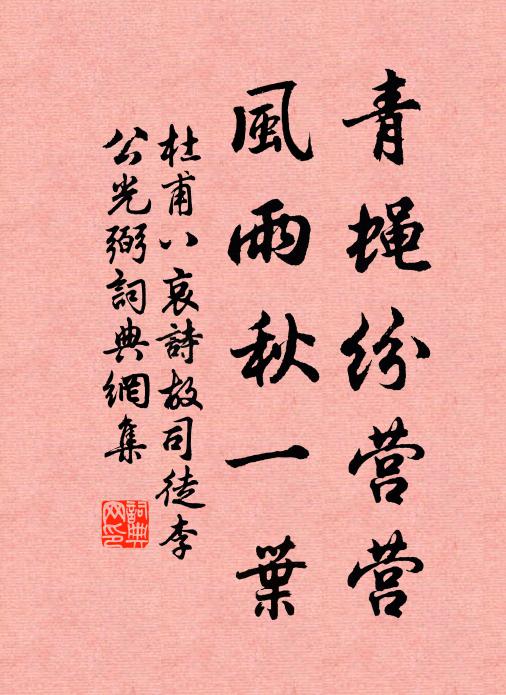 青蝇纷营营
風雨秋一葉
杜甫八哀詩故司徒李
公光弼詞典網集
詞典
网印